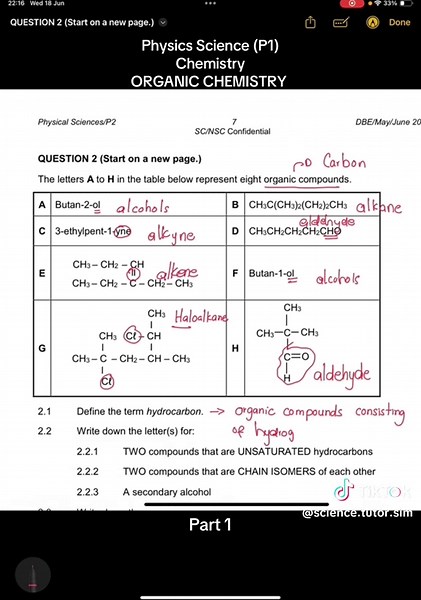 22:16 Wed 18 Jun
33%
QUESTION 2 (Start on a new page.)
Done
Physics Science (P1)
Chemistry
ORGANIC CHEMISTRY
Physical Sciences/P2
7
DBE/May/June 20
SC/NSC Confidential
QUESTION 2 (Start on a new page.)
Carbon
The letters A to H in the table below represent eight organic compounds.
A Butan-2-ol alcohols
B CH3C(CH3)2(CH2)2CH3 alkane
C 3-ethylpent-1-yne alkyne
D CH3CH2CH2CH2CHO aldehyde
E
CH3 – CH2 – CH
CH3 – CH2 – C – CH2 – CH3
alkene
F Butan-1-ol alcohols
G
CH3 Haloalkane
CH3 Cℓ – CH
CH3 – C – CH2 – CH – CH3
Cℓ
H
CH3
CH3 – C – CH3
C=O
H aldehyde
2.1 Define the term hydrocarbon. → organic compounds consisting
of hydrog
2.2 Write down the letter(s) for:
2.2.1 TWO compounds that are UNSATURATED hydrocarbons
2.2.2 TWO compounds that are CHAIN ISOMERS of each other
2.2.3 A secondary alcohol
TikTok
@science.tutor.sim
Part 1